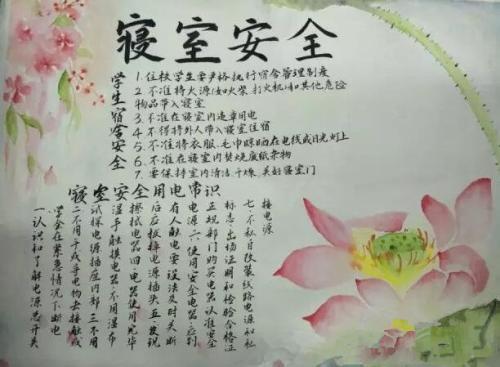 寝室安全
学生宿舍安全
1.住校学生要严格执行宿舍管理制度
2.不准将火源(如火柴、打火机)和其他危险
物品带入寝室
3.不准在寝室内违章用电
4.不得将外人带入寝室住宿
5.不准将衣服、毛巾晾晒在电线或日光灯上
6.不准在寝室内焚烧废纸杂物
7.要保持室内清洁、干燥、关好寝室门
寝室安全用电常识
一认识和了解电源总开关
学会在紧急情况下断电
二不用手或导电物去接触或
试探电源插座内部三不用
湿手触摸电器不用湿布
擦拭电器四电器使用完毕
后应拔掉电源插头五发现
有人触电要设法及时关断
电源六使用安全电器应到
正规部门购买电器认准安全
标志、出场证明和检验合格证
七不私自改装线路电源和私
接电源